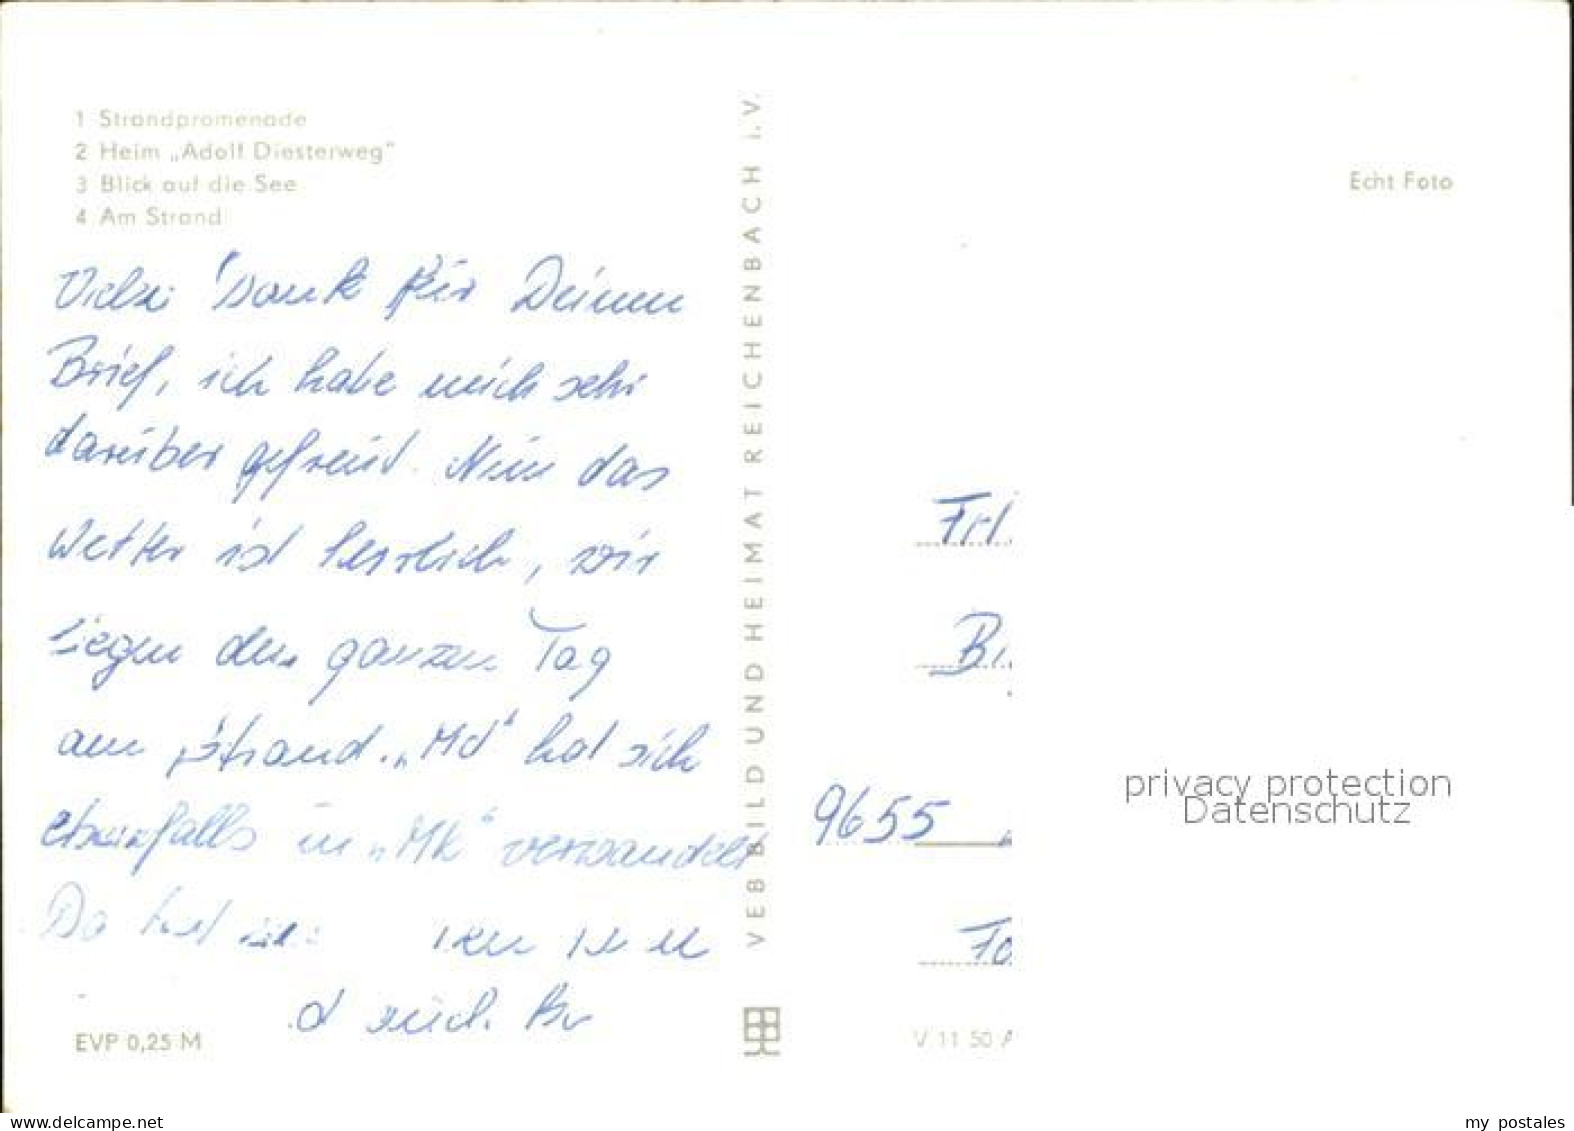 1 Strandpromenade
2 Heim „Adolf Diesterweg“
3 Blick auf die See
4 Am Strand
Echt Foto
Vielen Dank für Deinen
Brief, ich habe mich sehr
darüber gefreut. Nun das
Wetter ist herrlich, wir
liegen den ganzen Tag
am Strand. „Md“ hat sich
ebenfalls in „Mk“ verwandelt
Da
EVP 0,25 M
VEB BILD UND HEIMAT REICHENBACH i. V.
Frl.
9655
V 11 50 A
privacy protection
Datenschutz
www.delcampe.net
my_postales